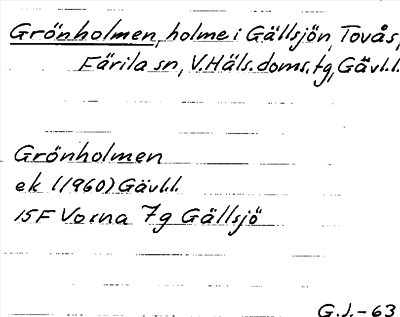 Grönholmen, holme i Gällsjön, Tovås,
Färila sn, V. Häls. doms. tg, Gävl.l.
Grönholmen
ek l (1960) Gävl.l.
15F Voxna 7g Gällsjö
G.J.-63